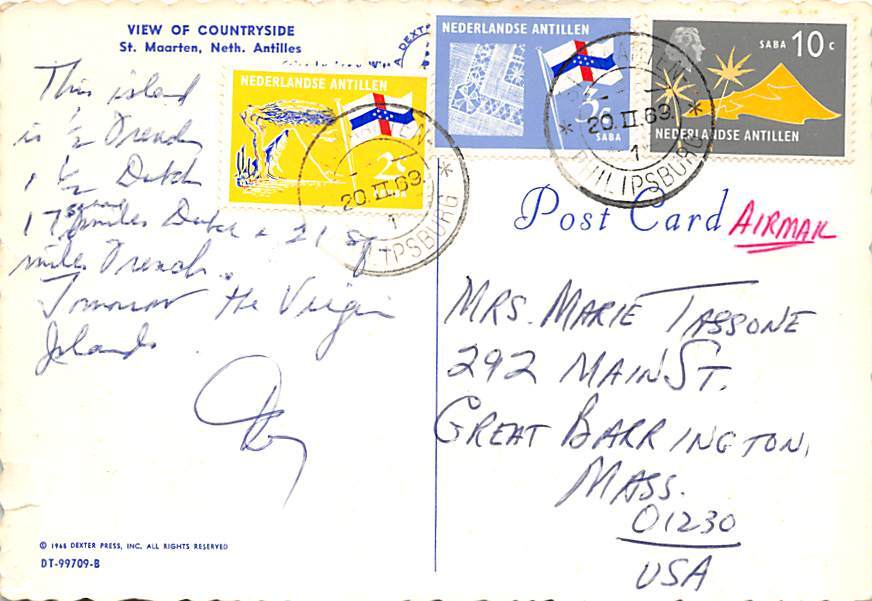 VIEW OF COUNTRYSIDE
St. Maarten, Neth. Antilles
This island
is 1/2 French
1 1/2 Dutch
17 square miles Dutch & 21 sq
miles French.
Tomorrow the Virgin
Islands.
© 1968 DEXTER PRESS, INC. ALL RIGHTS RESERVED
DT-99709-B
DEXT
NEDERLANDSE ANTILLEN
2c
NEDERLANDSE ANTILLEN
3c
SABA
SABA 10c
NEDERLANDSE ANTILLEN
20.II.69.
1
IPSBURG
20.II.69.
1
PHILIPSBURG
Post Card
AIRMAIL
MRS. MARIE TASSONE
292 MAIN ST.
GREAT BARRINGTON,
MASS.
01230
USA